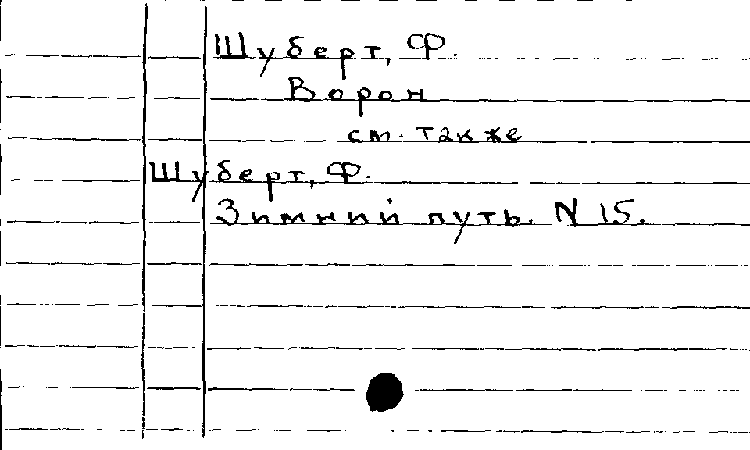 Шуберт, Ф.
Ворон
см. также
Шуберт, Ф.
Зимний путь. N 15.